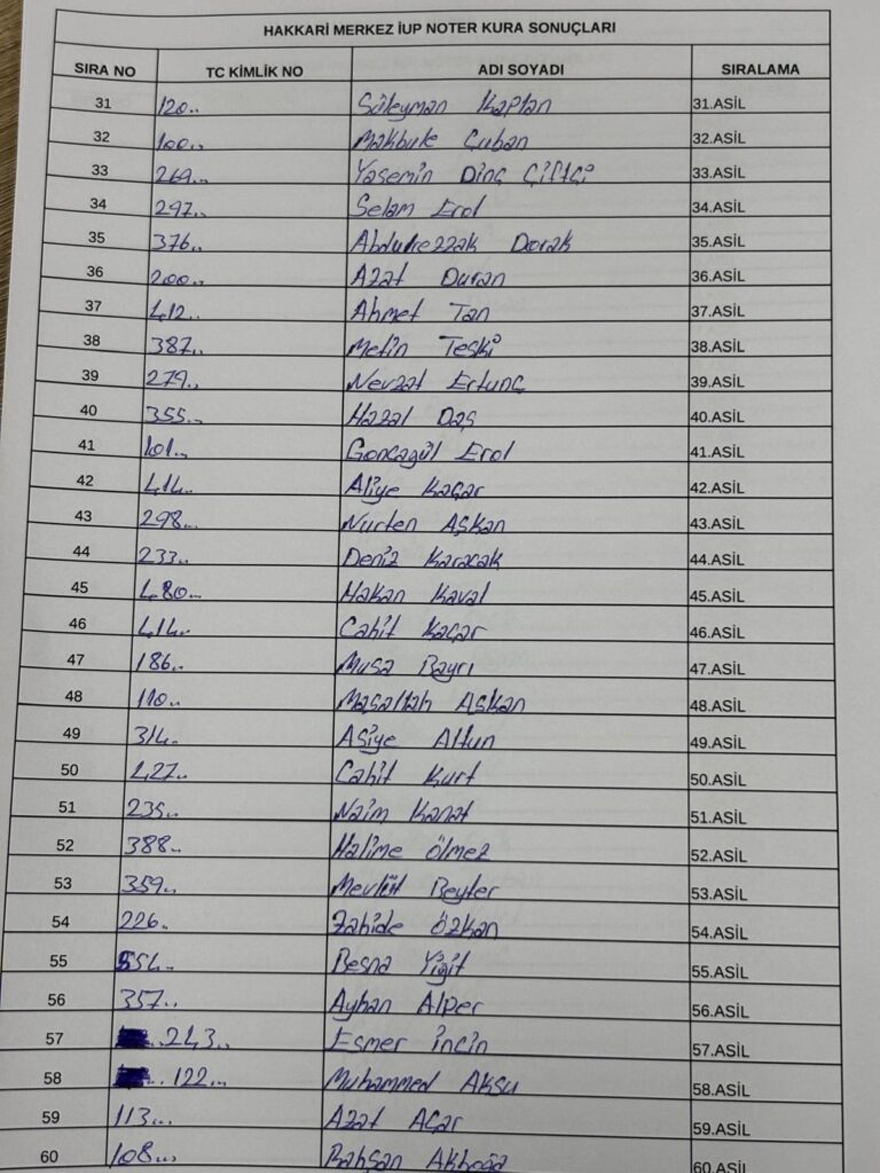 HAKKARİ MERKEZ İUP NOTER KURA SONUÇLARI
SIRA NO TC KİMLİK NO ADI SOYADI SIRALAMA
31 120.. Süleyman Kaplan 31.ASİL
32 100.. Makbule Çuban 32.ASİL
33 269... Yasemin Dinç Çiftçi 33.ASİL
34 297.. Selam Erol 34.ASİL
35 376.. Abdulrezzak Dorak 35.ASİL
36 200... Azat Duran 36.ASİL
37 412.. Ahmet Tan 37.ASİL
38 387.. Metin Teski 38.ASİL
39 279.. Nevzat Ertunç 39.ASİL
40 355... Hazal Daş 40.ASİL
41 101... Goncagül Erol 41.ASİL
42 414.. Aliye Kaçar 42.ASİL
43 298... Nurten Aşkan 43.ASİL
44 233.. Deniz Karacak 44.ASİL
45 480... Hakan Kaval 45.ASİL
46 414.. Cahit Kaçar 46.ASİL
47 186.. Musa Bayrı 47.ASİL
48 110.. Maşallah Aşkan 48.ASİL
49 314.. Asiye Altun 49.ASİL
50 427.. Cahit Kurt 50.ASİL
51 235.. Naim Kanat 51.ASİL
52 388.. Halime Ölmez 52.ASİL
53 359.. Mevlüt Beyter 53.ASİL
54 226. Zahide Özkan 54.ASİL
55 554.. Besna Yiğit 55.ASİL
56 357.. Ayhan Alper 56.ASİL
57 ..243.. Esmer İncin 57.ASİL
58 .. 122... Muhammed Aksu 58.ASİL
59 113... Azat Açar 59.ASİL
60 108... Bahşan Akboğa 60.ASİL